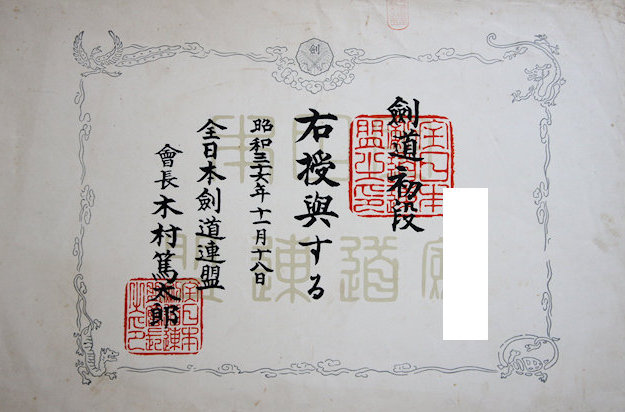 劍
劍道初段
右授與する
昭和三六年十一月十八日
全日本劍道連盟
會長 木村篤太郎